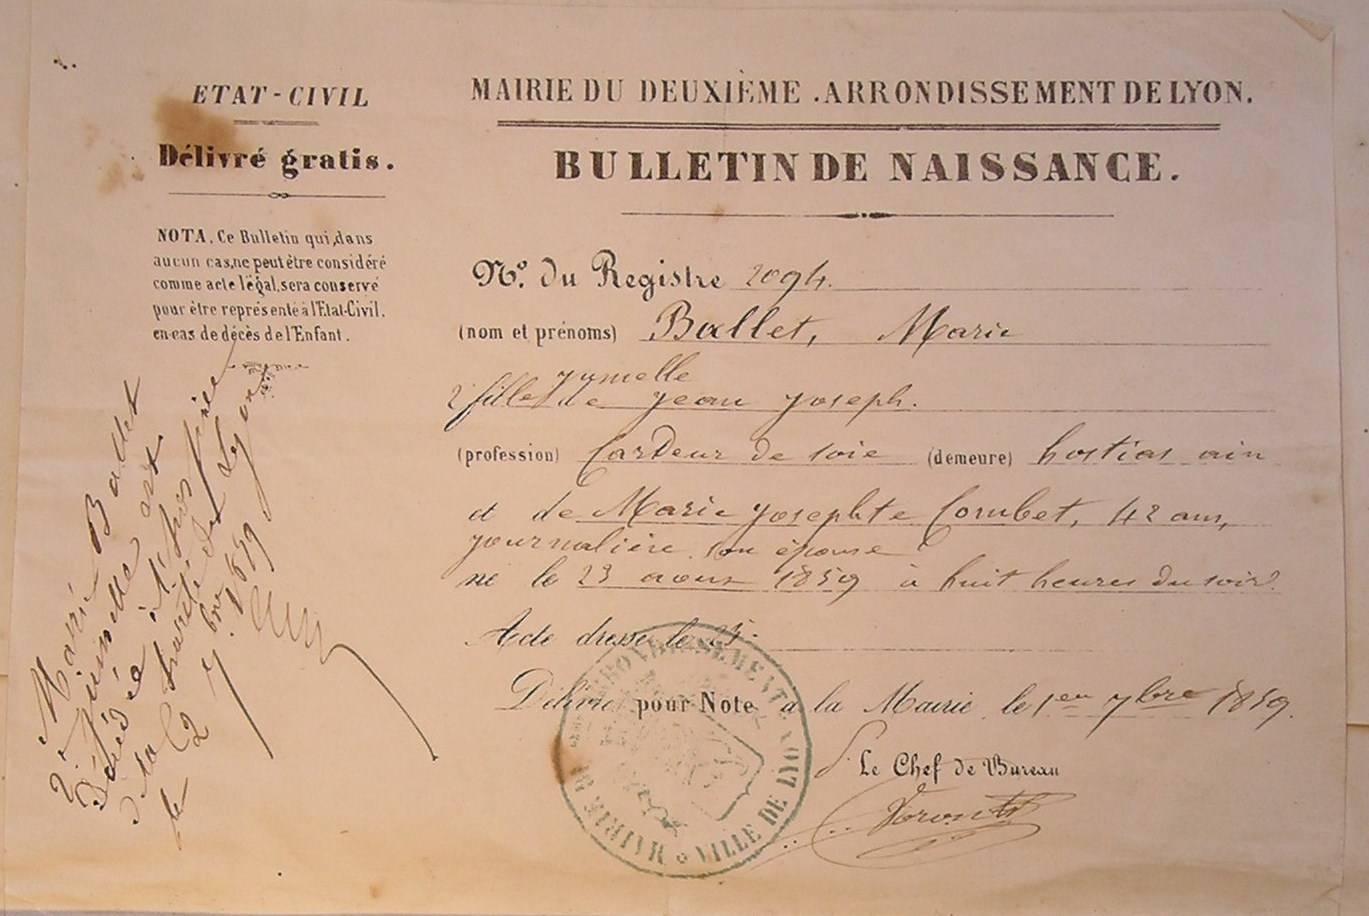 ETAT-CIVIL
Délivré gratis.
NOTA. Ce Bulletin qui, dans
aucun cas, ne peut être considéré
comme acte légal, sera conservé
pour être représenté à l'Etat-Civil.
en cas de décès de l'Enfant.
Marie Ballet
2e jumelle est
Décédée à l'hospice
de la Charité de Lyon
le 2 7bre 1859
MAIRIE DU DEUXIÈME ARRONDISSEMENT DE LYON.
BULLETIN DE NAISSANCE.
No. du Registre 2094.
(nom et prénoms) Ballet, Marie
jumelle
2e fille de Jean Joseph.
(profession) Cardeur de soie (demeure) hostias ain
et de Marie Josephte Cornbet, 42 ans,
journalière son épouse
né le 23 aout 1859 à huit heures du soir
Acte dressé le
Délivré pour Note à la Mairie le 1er 7bre 1859.
Le Chef de Bureau
MAIRIE DU 2e ARRONDISSEMENT VILLE DE LYON